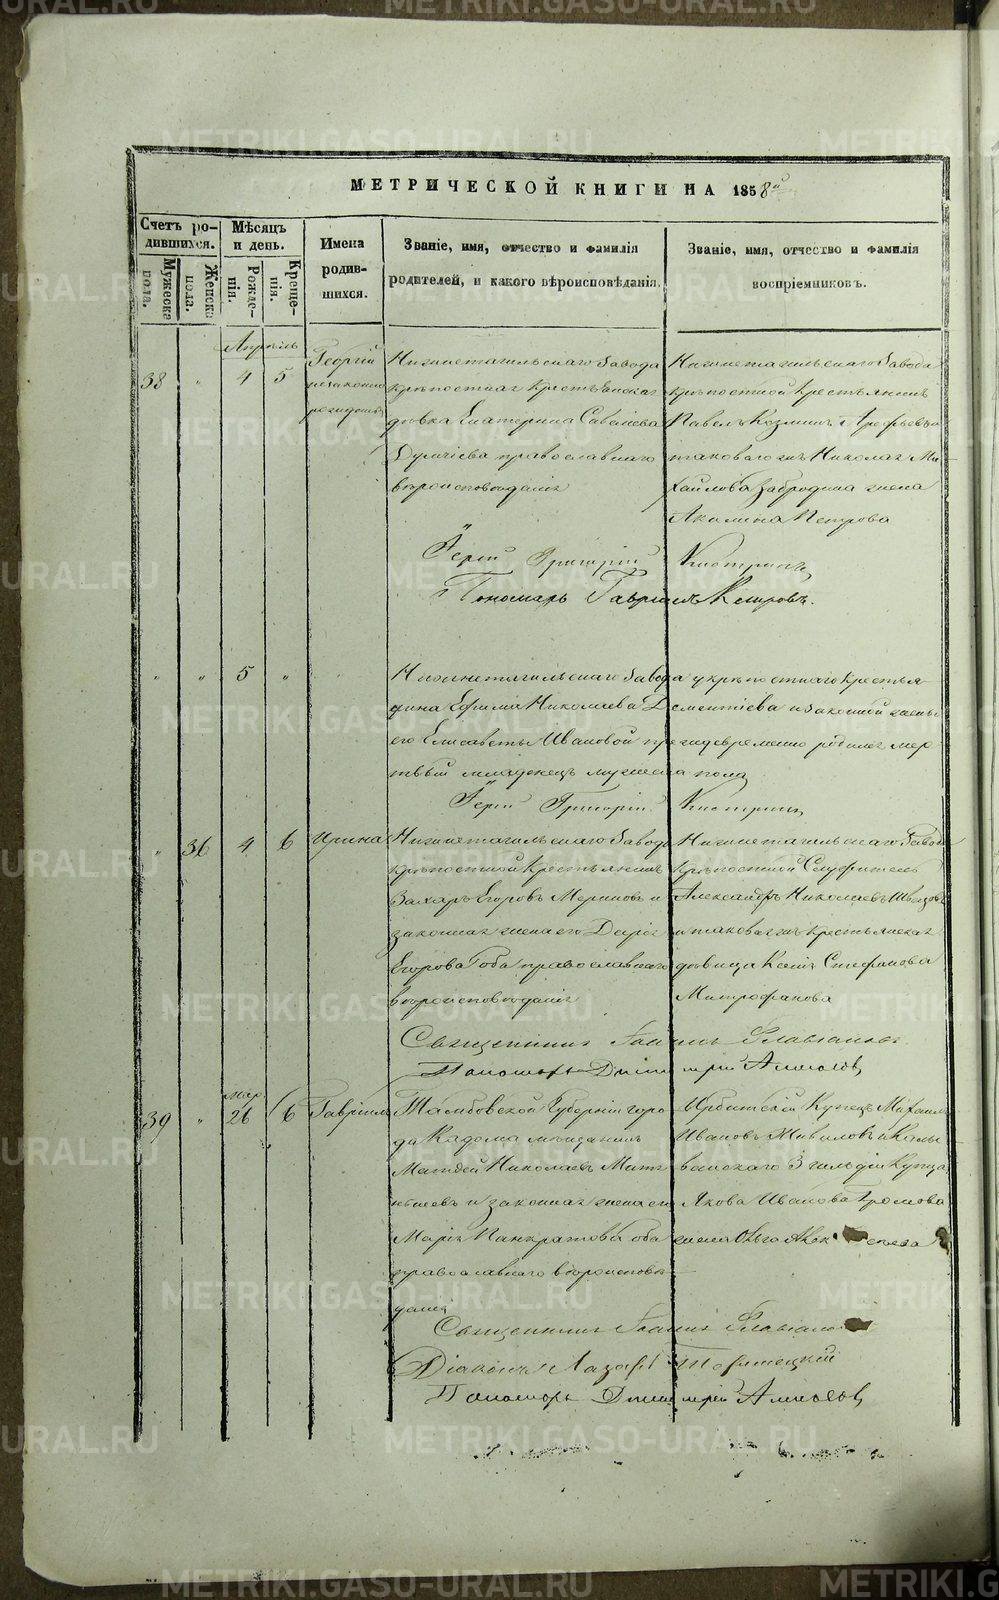 МЕТРИЧЕСКОЙ КНИГИ НА 1858й
Счетъ ро-
дившихся.
Мужеска
пола.
Женска
пола.
Мѣсяцъ
и день.
Рожде-
нія.
Креще-
нія.
Имена
родив-
шихся.
Званіе, имя, отчество и фамилія
родителей, и какого вѣроисповѣданія.
Званіе, имя, отчество и фамилія
воспріемниковъ.
Апрѣль
38 " 4 5
Георгій
незаконно
рожденъ
Нижнетагильскаго Завода
крѣпостная Крестьянская
дѣвка Екатерина Савельева
православнаго
вѣроисповѣданія
Нижнетагильскаго Завода
крѣпостной крестьянинъ
Павелъ Козминъ
таковаго жъ Николая Ми-
хайлова Забродина жена
Акилина Петрова
Іерей Григорій
Пономарь Гавріилъ
" " 5 " "
Нижнетагильскаго Завода у крѣпостнаго крестья-
нина Ефима Николаева Дементіева и законной жены
его Елисаветы Ивановой преждевременно родился мер-
твый младенецъ мужеска пола
Іерей Григорій
" 36 4 6 Ирина
Нижнетагильскаго Завода
крѣпостной Крестьянинъ
Захаръ Егоровъ и
законная жена его Дарія
Егорова оба православнаго
вѣроисповѣданія
Нижнетагильскаго Завода
крѣпостной Служитель
Александръ Николаевъ Швецовъ
и таковая жъ крестьянская
дѣвица Ксенія Стефанова
Митрофанова
Священникъ Іоаннъ
Пономарь Димитрій
мар.
39 " 26 6 Гавріилъ
Тамбовской Губерніи горо-
да Кадома мѣщанинъ
Матвей Николаевъ
и законная жена его
Марія Панкратова оба
православнаго вѣроисповѣ-
данія
Ирбитскій Купецъ Михаилъ
Ивановъ
3 гильдіи Купца
Якова Иванова
жена Ольга
Священникъ Іоаннъ
Діаконъ Лазарь
Пономарь Димитрій
METRIKI.GASO-URAL.RU